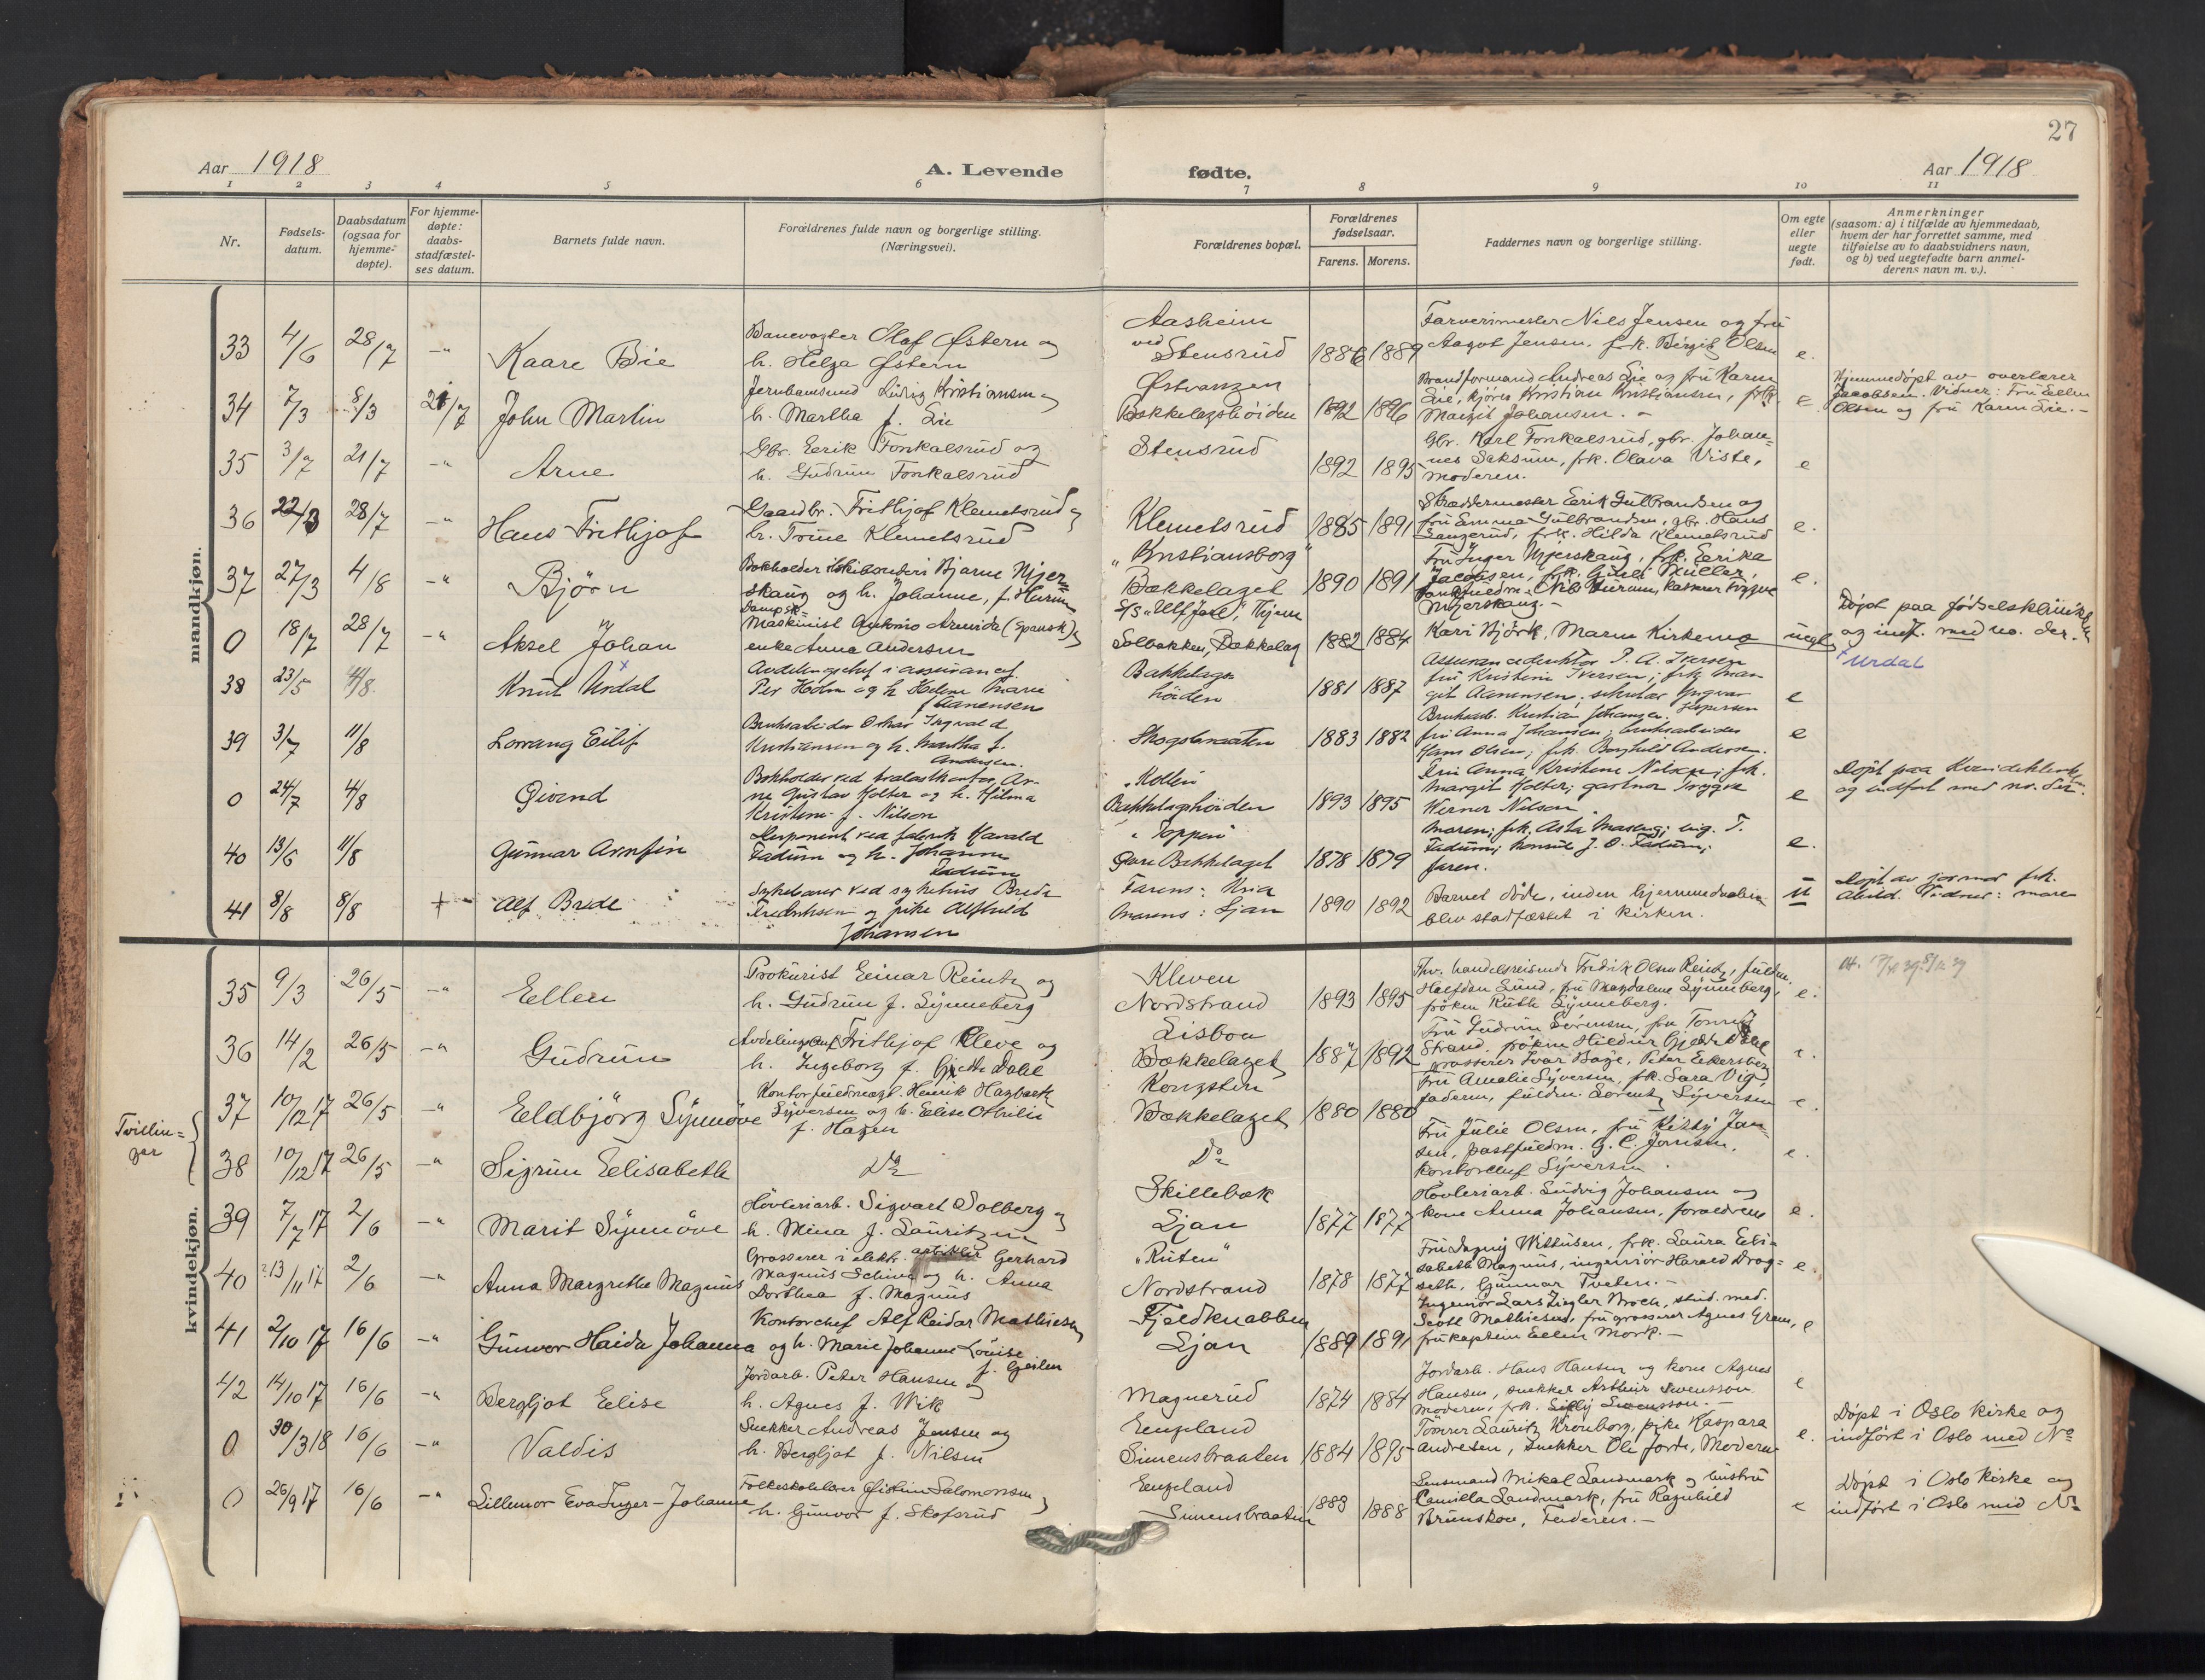 27
Aar 1918
A. Levende
fødte.
Aar 1918
1 2 3 4 5 6 7 8 9 10 11
Nr.
Fødsels-
datum.
Daabsdatum
(ogsaa for
hjemme-
døpte).
For hjemme-
døpte:
daabs-
stadfæstel-
ses datum.
Barnets fulde navn.
Forældrenes fulde navn og borgerlige stilling.
(Næringsvei).
Forældrenes bopæl.
Forældrenes
fødselsaar.
Farens. Morens.
Faddernes navn og borgerlige stilling.
Om egte
eller
uegte
født.
Anmerkninger
(saasom: a) i tilfælde av hjemmedaab,
hvem der har forrettet samme, med
tilføielse av to daabsvidners navn,
og b) ved uegtefødte barn anmel-
derens navn m. v.).
mandkjøn.
33 4/6 28/7 -"- Kaare Bie
Banevogter Olaf Østern og
h. Helga Østern
Aasheim
ved
Stensrud
1886 1889
Farverimester Nils Jensen og fru
Aagot Jensen, frk. Birgit Olsen
e.
34 7/3 8/3 21/7 John Martin
Jernbanemand Ludvig Kristiansen og
h. Martha f. Lie
Østvangen
Bækkelagshöiden
1892 1896
Brandformand Andreas Lie og fru Karen
Lie, kjører Kristian Kristiansen, frk.
Margit Johansen.
e.
Hjemmedöpt av overlærer
Jacobsen. Vidner: Fru Ellen
Olsen og fru Karen Lie.-
35 3/7 21/7 -"- Arne
Gbr. Eerik Fonkalsrud og
h. Gudrun Fonkalsrud
Stensrud
1892 1895
Gbr. Karl Fonkalsrud, gbr. Johan=
nes Saksum, frk. Olava Viste,
moderen.
e
36 22/3 28/7 -"- Hans Frithjof
Gaardbr. Frithjof Klemetsrud og
h. Trine Klemetsrud
Klemetsrud
1885 1891
Skræddermester Eerik Gulbrandsen og
fru Emma Gulbrandsen, gbr. Hans
frk. Hilda Klemetsrud
e.
37 27/3 4/8 -"- Björn
Bokholder Bjarne Mjer=
skaug og h. Johanne, f.
"Kristiansborg"
Bækkelaget
1890 1891
Fru Inger Mjerskaug, frk. Eerika
Jacobsen, frk. Müller,
Mjerskaug.-
e.
0 18/7 28/7 -"- Aksel Johan
Maskinist Antonio Armida (Spansk) og
enke Anna Andersen
Solbakken, Bækkelag
1882 1884
Kari Björk, Maren Kirkemo
uegte
Döpt paa Födselsklinikken
og indf. med no. der.
38 23/5 4/8 Knut Urdal x
Avdelingschef i
Per Holm og h. Helene Marie
f. Aanensen
Bækkelags-
höiden
1881 1887
P. A. Iversen
fru Kristine Iversen; frk. Mar-
git Aanensen. Yngvar
Jespersen
e
x Urdal
39 3/7 11/8 Lorrang Eilif
Bruksarbeider Oskar Ingvald
Kristiansen og h. Martha f.
Andersen.
Skogsbraaten
1883 1882
Bruksarb. Kristian Johansen.
fru Anna Johansen; bruksarbeider
Hans Olsen; frk. Borghild Andersen.
e
0 24/7 4/8 Øivind
Bokholder ved Ar-
ne Gustav Holter og h. Hilma
Kristine f. Nilsen
Bækkelagshöiden
1893 1895
Fru Anna Kristine Nilsen; frk.
Margit Holter; gartner Trygve
Werner Nilsen
e
Döpt paa
og indfört med no. der.
40 13/6 11/8 Gunnar Arnfin
Disponent ved fabrik Harald
Fadum og h. Johanne
Fadum
"Toppen"
Øvre Bækkelaget
1878 1879
Moren; frk. Asta ing. T.
Fadum; konsul J. O. Fadum;
faren.
e.
41 8/8 8/8 + Alf Brede
ved sykehus Brede
Fredriksen og pike Alfhild
Johansen
Farens: Kria
Morens: Ljan
1890 1892
Barnet döde, inden hjemmedaaben
blev stadfæstet i kirken.
u
Döpt av jormor frk.
Vidner:
kvindekjøn.
35 9/3 26/5 -"- Eellen
Prokurist Eeinar Reintz og
h. Gudrun f. Synneberg
Kleven
Nordstrand
1893 1895
Fhv. handelsreisende Fredrik Olsen Reintz,
Halfdan Lund, fru Magdalene Synneberg,
fröken Ruth Synneberg.
e.
36 14/2 26/5 -"- Gudrun
Avdelingschef Frithjof Kleve og
h. Ingeborg f. Gjethe Dahl
Lisbon
Bækkelaget
1887 1892
Fru Gudrun Sörensen, fru
Strand, fröken Hildur Gjethe Dahl
grosserer Ivar Bøje, Peter Eckersberg
e.
Tvillin=
ger
37 10/12 17 26/5 -"- Eeldbjörg Synnöve
Henrik Hagbarth
Syversen og h. Eelise Othilie
f. Hagen
Kongsten
Bækkelaget
1880 1880
Fru Amalie Syversen, frk. Sara Vig,
faderen, fuldm. Lorentz Syversen
e.
38 10/12 17 26/5 -"- Sigrun Eelisabeth
Do
Do
Fru Julie Olsen, fru Kitty Jan-
sen, postfuldm. G. C. Jansen,
kontorchef Syversen.
e.
39 7/7 17 2/6 -"- Marit Synnöve
Hövleriarb. Sigvart Solberg og
h. Mina f. Lauritzen
Skillebæk
Ljan
1877 1877
Hövleriarb. Ludvig Johansen og
kone Anna Johansen, forældrene
e.
40 13/11 17 2/6 -"- Anna Margrethe Magnus
Grosserer i elektr. artikler Gerhard
Magnus Schive og h. Anna
Dorthea f. Magnus
"Ruten"
Nordstrand
1878 1877
Fru Dagny Withusen, frk. Laura Eeli=
sabeth Magnus, ingeniör Harald Drag=
seth, Gunnar Tveten.-
e.
41 2/10 17 16/6 -"- Gunvor Haida Johanna
Kontorchef Alf Reidar Mathiesen
og h. Marie Johanne Louise
f. Geilen
Fjeldknabben
Ljan
1889 1891
Ingeniör Lars Ziegler Broch, stud. med.
Scott Mathiesen, fru grosserer Agnes Gram,
fru kaptein Eellen Mork.-
e
42 14/10 17 16/6 -"- Bergljot Eelise
Jordarb. Peter Hansen og
h. Agnes f. Wik
Magnerud
1874 1884
Jordarb. Hans Hansen og kone Agnes
Hansen, snekker Arthur Swensson
moderen, frk. Swensson.-
e
0 30/3 18 16/6 -"- Valdis
Snekker Andreas Jensen og
h. Bergljot f. Nilsen
Eengland
Simensbraaten
1884 1895
Tömrer Lauritz Kronborg, pike Kaspara
Andresen, snekker Ole Forde, Moderen
e.
Döpt i Oslo kirke og
indfört i Oslo med No
0 26/9 17 16/6 -"- Lillemor Eva Inger-Johanne
Folkeskolelærer Salomonsen og
h. Gunvor f. Skofsrud
Eengland
Simensbraaten
1883 1888
Lensmand Mikal Landmark og hustru
Camilla Landmark, fru Ragnhild
Brunskov, Faderen.-
e
Döpt i Oslo kirke og
indfört i Oslo med No